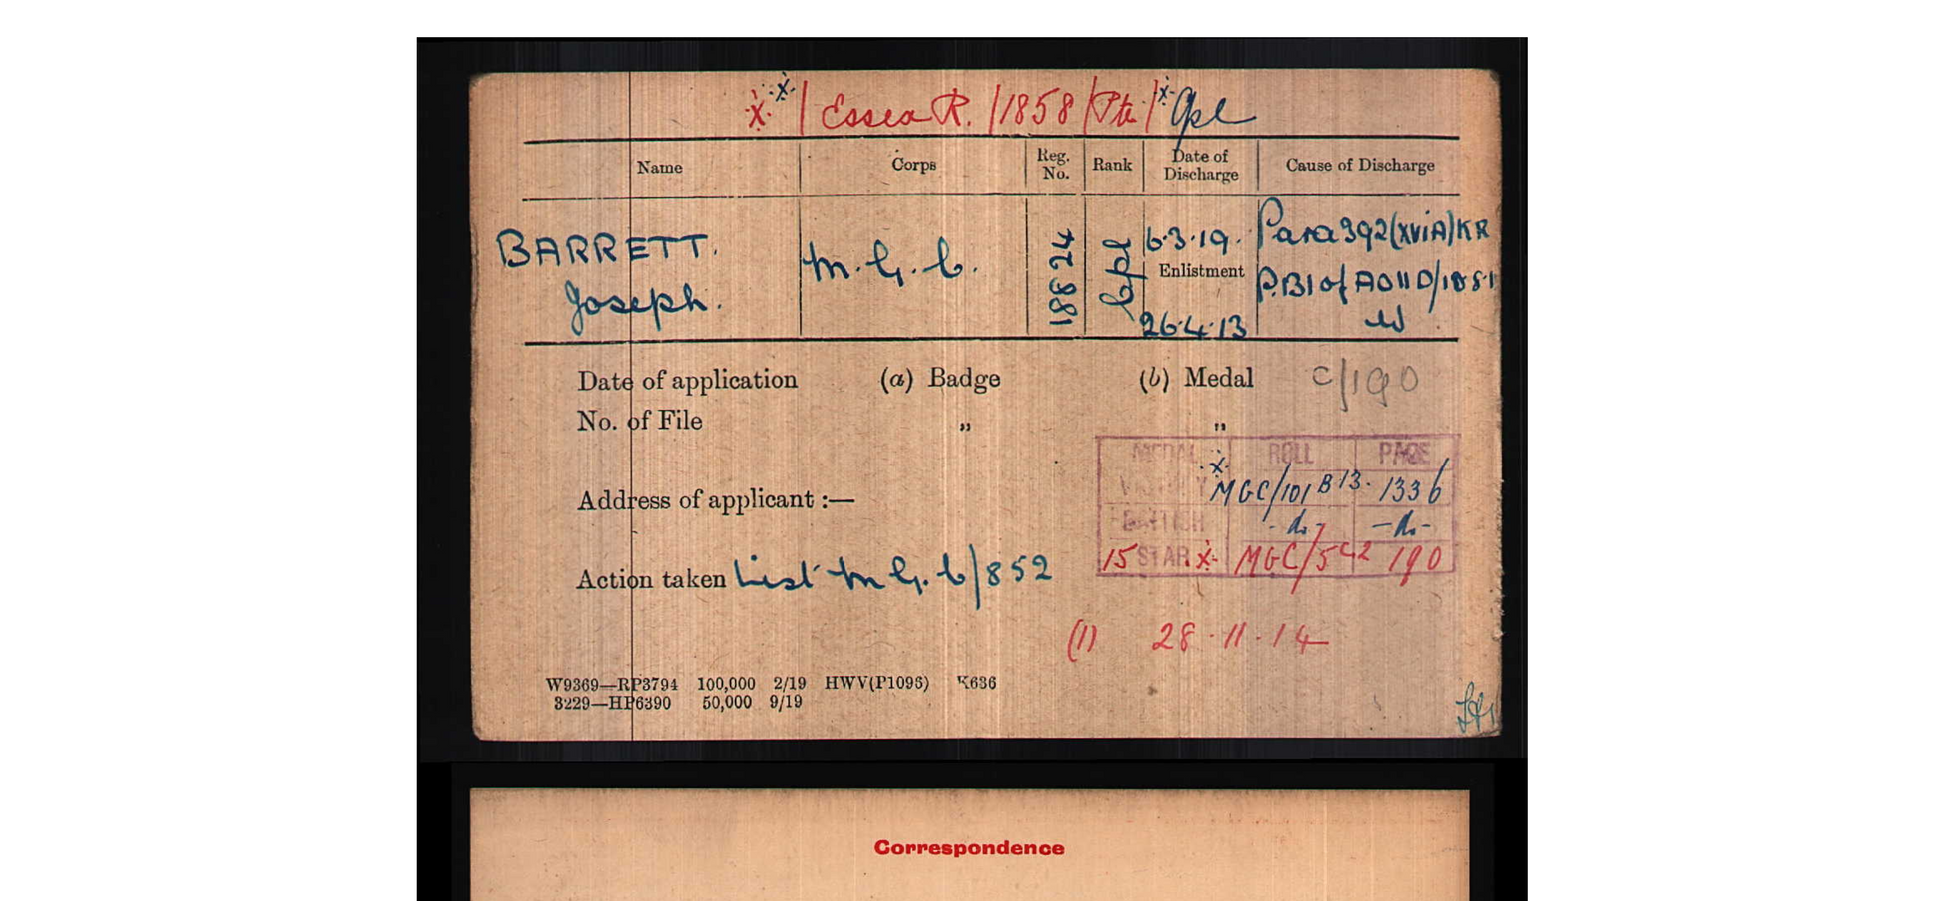 x x | Essex R. / 1858 / Pte / x Cpl
Name Corps Reg. No. Rank Date of Discharge Cause of Discharge
BARRETT. Joseph. M.G.C. 18824 Cpl 6.3.19. Enlistment 26.4.13 Para 392(XVIA)KR
P.B1 of AO11D/1881
W
Date of application (a) Badge (b) Medal C/190
No. of File „ „
MEDAL ROLL PAGE
VICTORY x MGC/101 B13. 1336
Address of applicant :—
BRITISH -do- -do-
15 STAR x MGC/5C2 190
Action taken List M.G.C/852
(1) 28.11.14
W9369—RP3794 100,000 2/19 HWV(P1096) K636
3229—HP6390 50,000 9/19
Correspondence